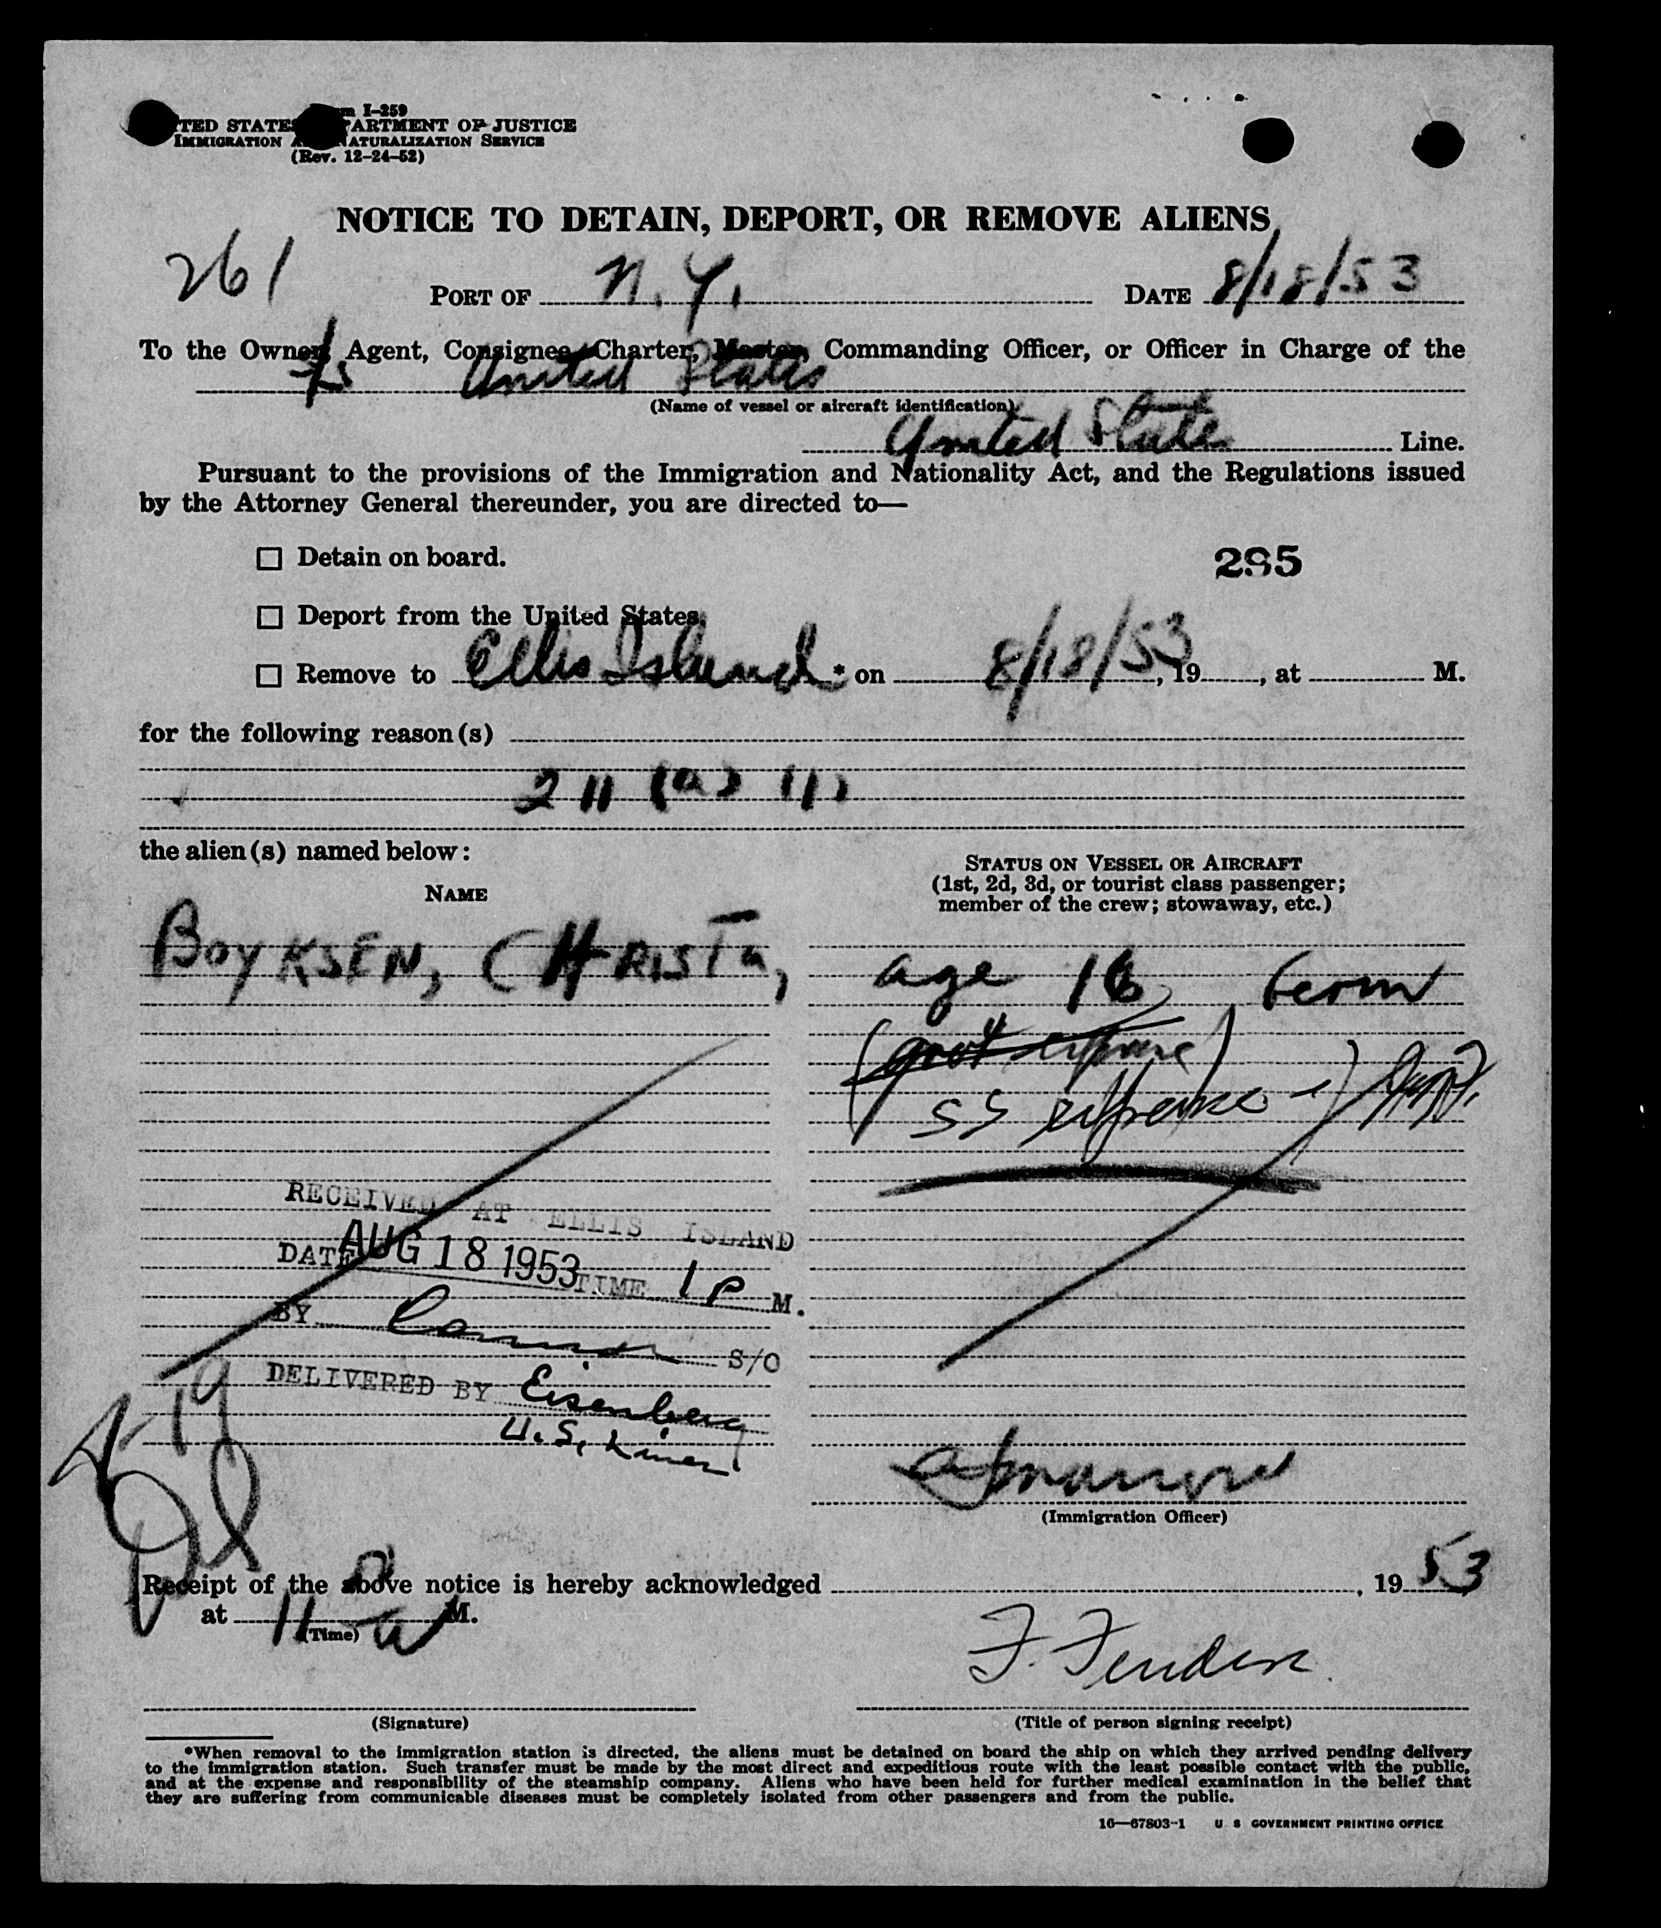 Form I-259
UNITED STATES DEPARTMENT OF JUSTICE
IMMIGRATION AND NATURALIZATION SERVICE
(Rev. 12-24-52)
NOTICE TO DETAIN, DEPORT, OR REMOVE ALIENS
261
PORT OF N. Y. DATE 8/18/53
To the Owner, Agent, Consignee, Charter, Master, Commanding Officer, or Officer in Charge of the
SS United States
(Name of vessel or aircraft identification)
United States Line.
Pursuant to the provisions of the Immigration and Nationality Act, and the Regulations issued
by the Attorney General thereunder, you are directed to—
☐ Detain on board.
295
☐ Deport from the United States.
☐ Remove to Ellis Island * on 8/18/53, 19, at M.
for the following reason(s)
211 (a) (1)
the alien(s) named below:
NAME
STATUS ON VESSEL OR AIRCRAFT
(1st, 2d, 3d, or tourist class passenger;
member of the crew; stowaway, etc.)
BOYKSEN, CHRISTa, age 16 Germ
(govt expense)
SS expense
RECEIVED AT ELLIS ISLAND
DATE AUG 18 1953 TIME 1 P M.
BY S/O
DELIVERED BY Eisenberg
U.S. Lines
(Immigration Officer)
Receipt of the above notice is hereby acknowledged , 19 53
at 11 a M.
(Time)
F.
(Signature)
(Title of person signing receipt)
*When removal to the immigration station is directed, the aliens must be detained on board the ship on which they arrived pending delivery
to the immigration station. Such transfer must be made by the most direct and expeditious route with the least possible contact with the public,
and at the expense and responsibility of the steamship company. Aliens who have been held for further medical examination in the belief that
they are suffering from communicable diseases must be completely isolated from other passengers and from the public.
16—67803-1 U. S. GOVERNMENT PRINTING OFFICE